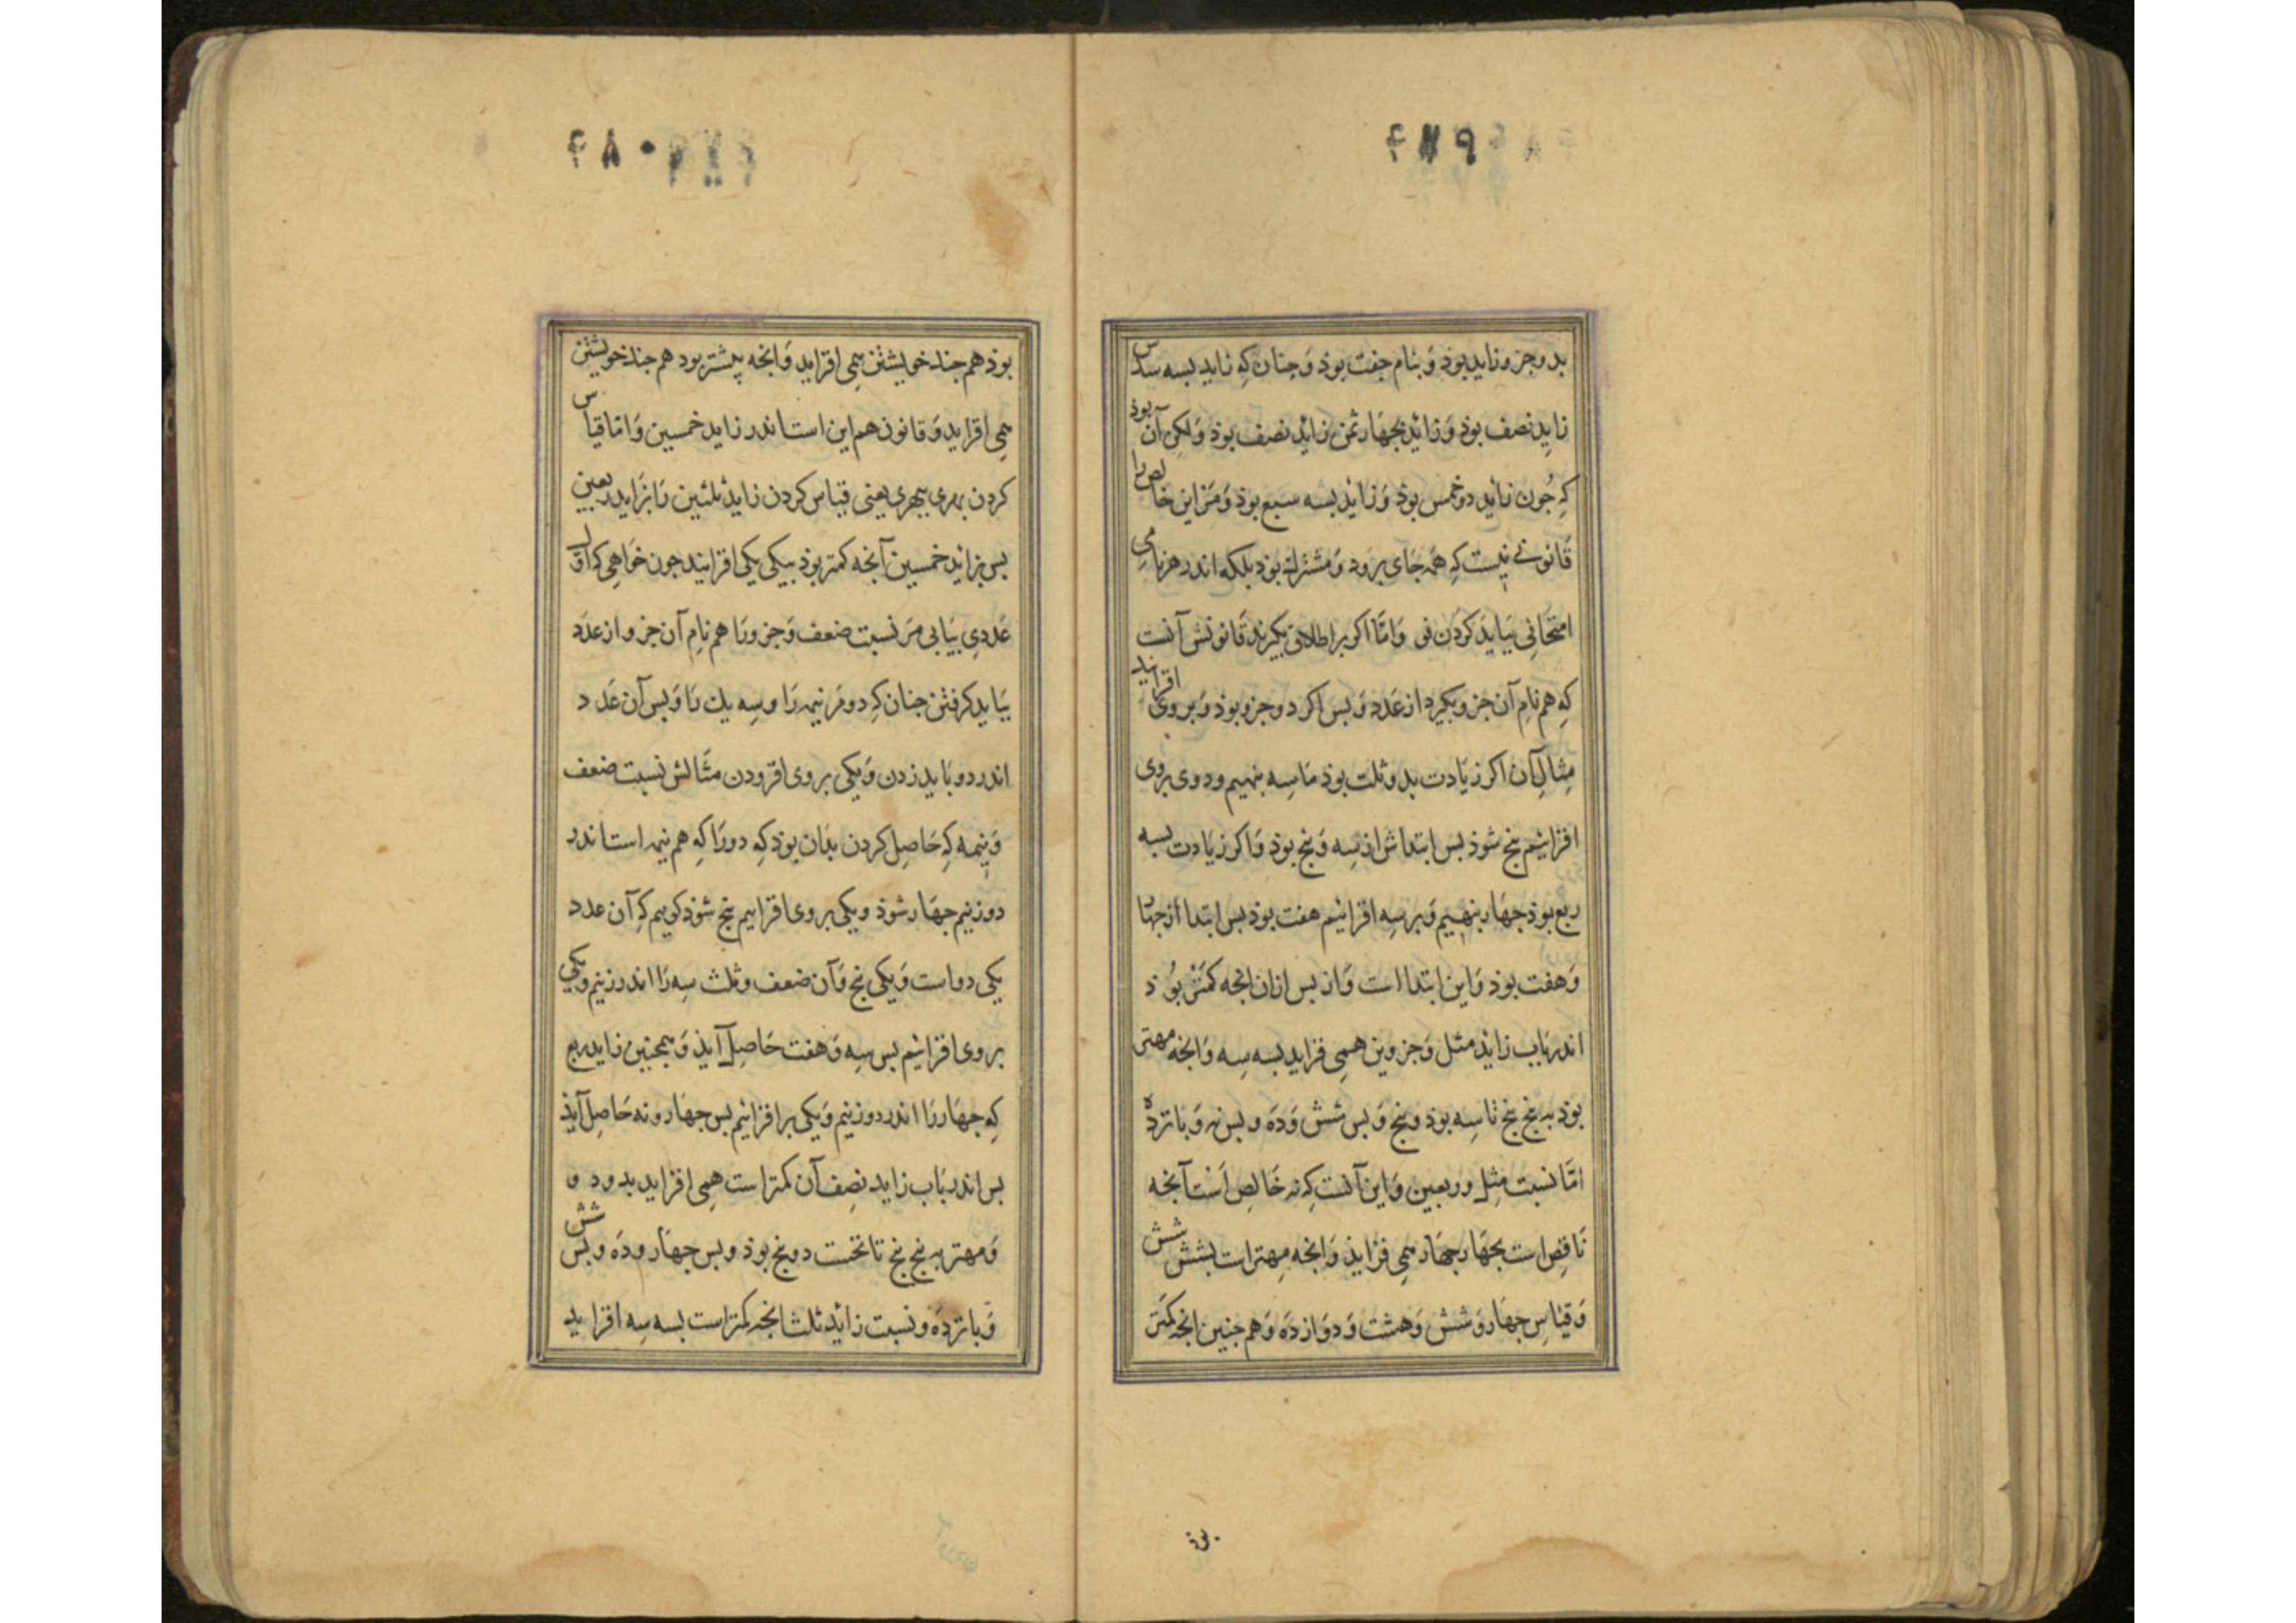 بدو جزو زاید بوذ وَ بنام جفت بوذ وَ چنان کِه زاید بسه سدس
زایِد نصف بوذ وَ زائِد بجهَار ثمن زائِد نصف بوذ وَ لیکن آن بوذ
کِه جُون زایِد دو خمس بوذ وَ زائِد بسه سبع بوذ وَ مَر این خالص را
قَانونی نیست کِه همَه جَای برَود وَ مشترک بوذ بلکه اندر هر نامی
امتحَانی بَیَاید کردَن نو وَ امَّا اکر بر اطلاق بکیرند قَانونش آنست
کِه هم نامِ آن جزو بکیرد از عَدد وَ بس اکر دو جزو بوذ وَ بر وی افزایند
مِثالِ آن اکر زیَادت بدو ثلت بوذ مَا سِه بنهیم و دو وی بروی
افزائیم بنج شوذ بس ابتداش از سِه وَ بنج بوذ وَ اکر زیَادت بسه
ربع بوذ جهَار بنهیم وَ بر سِه افزائیم هفت بوذ بس ابتدا از جهار
وَ هفت بوذ وَ این ابتدا است وَ از بس ازان انجه کمتَر بُوذ
اندر بَاب زائِد مثل وَ جزوین همِی فزاید بسه سِه وَ انجه مهتر
بوَذ به بنج بنج تا سِه بوذ و بنج وَ بس شش وَ دَه و بس نه وَ بانزدَه
امَّا نسبَت مِثِل و ربعین وَ این آنست کِه نه خَالِص اَست آنجه
نَاقِص است بجهَار جهَار همی فزایذ وَ انجه مِهتر است بشش شش
وَ قیَاسِ جهَار وَ شش وَ هشت وَ دوَازدَه وَ هم جنین انجه کمتَر
بوذ هم جند خویشتن همِی افزاید وَ انجه پیشتر بود هم جند خویشتن
همِی افزاید وَ قانون هم این است اندر زاید خمسین وَ امَّا قیاس
کردن بهری ببهری یعنی قیَاس کردن زایِد ثلثین رَا بزَاید ربعین
بس بزائِد خمسین آنجه کمتر بوذ بیکی یکی افزایند جون خَواهِی که اوّل
عَددِی بیَابی مَر نسبت ضعف وَ جزو رَا هم نامِ آن جزو از عَدَد
بَیَاید کرفتن جنان کِه دو مَر نیمه رَا و سِه یك رَا وَ بس آن عَدد
اندر دو بَاید زدن وَ یکی بر وی افزودن مثَالش نسبت ضعف
وَ نیمه کِه حَاصِل کردن بدَان بوذ کِه دو رَا کِه هم نیمه است اندر
دو زنیم جهَار شوذ و یکی بر وی افزاییم بنج شوذ کوییم کِه آن عدد
یکی دو است وَ یکی بنج وَ آن ضعف و ثلث سِه رَا اندر زنیم و یکی
بر وی افزائیم بس سِه وَ هفت حَاصِل آیذ وَ همجنین زاید ربع
کِه جهَار رَا اندر دو زنیم وَ یکی بر افزائیم بس جهَار و نه حَاصِل آیذ
بس اندر بَاب زاید نصِف آن کمتر است همِی افزاید بدو دو
وَ مهتر به بنج بنج تا نخست دو بنج بوذ و بس جهَار و دَه و بس شش
وَ بانزدَه و نسبت زائِد ثلث انجه کمتر است بسه سِه افزاید